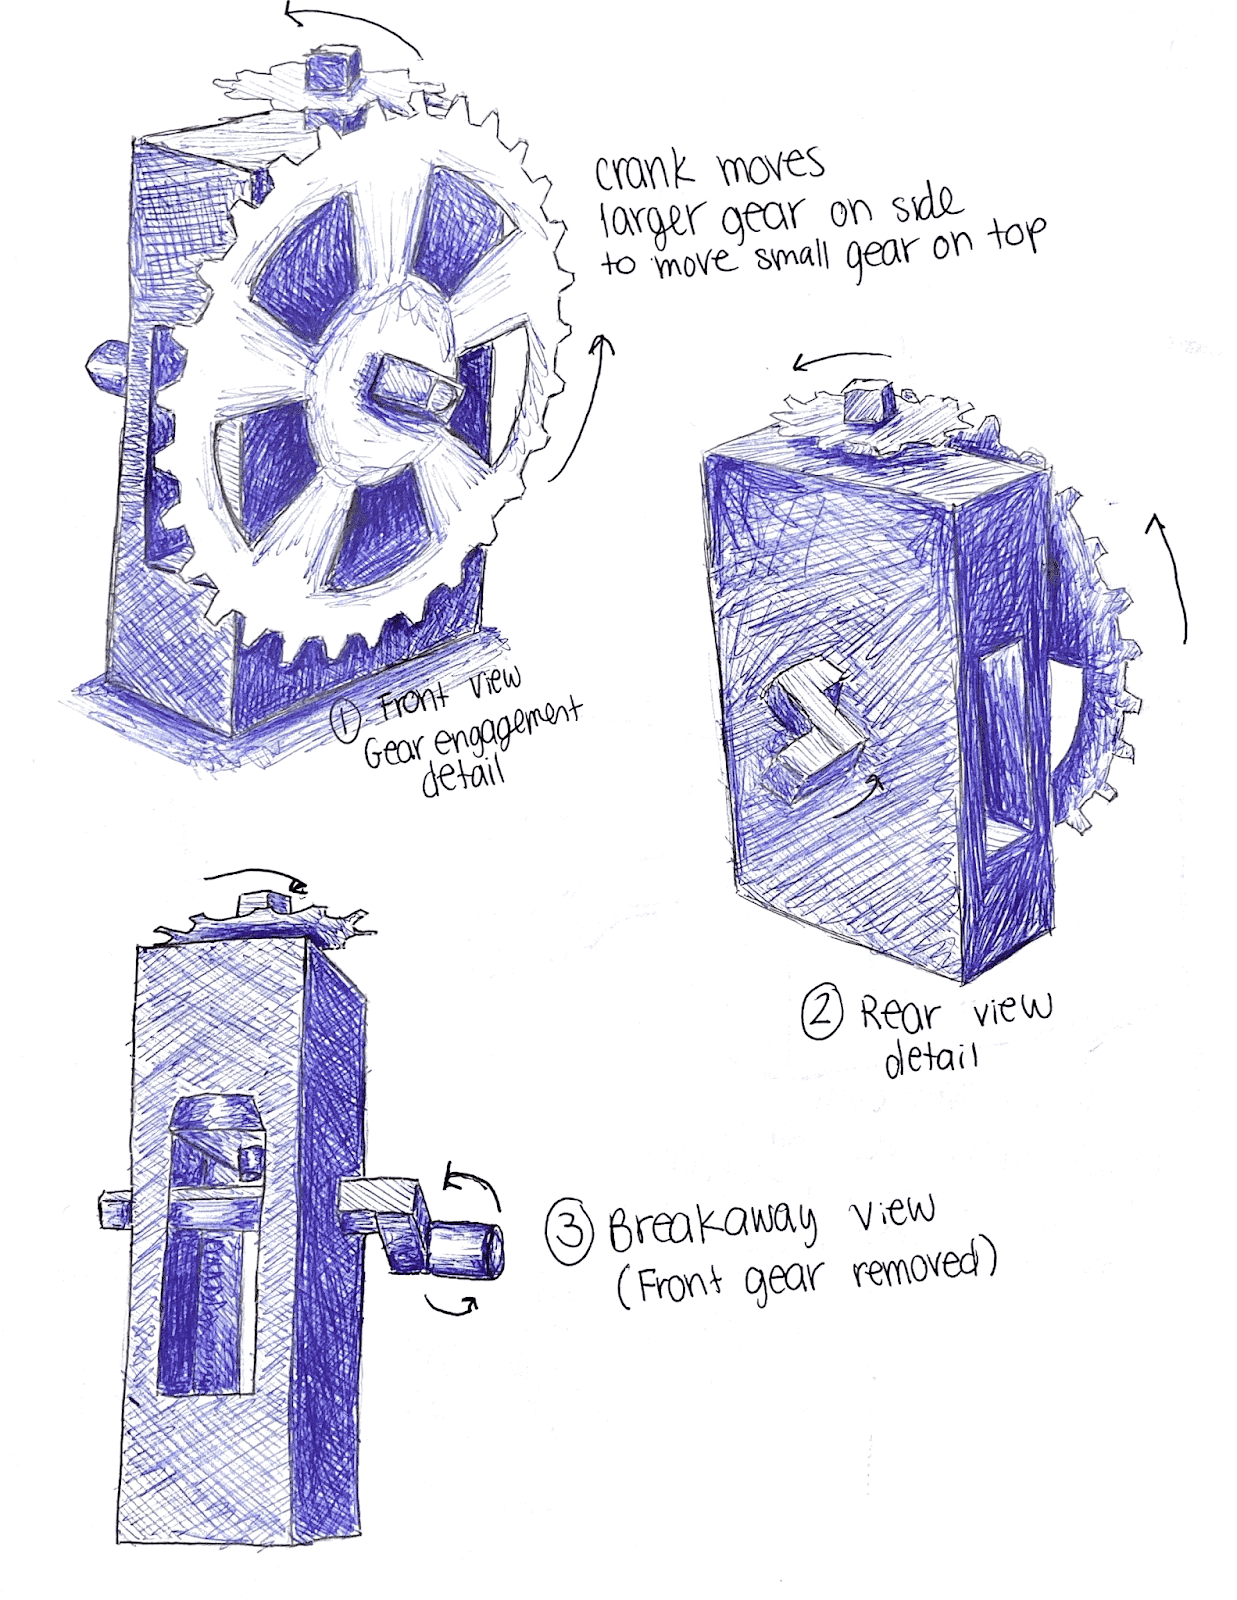 crank moves
larger gear on side
to move small gear on top
① Front view
Gear engagement
detail
② Rear view
detail
③ Breakaway view
(Front gear removed)